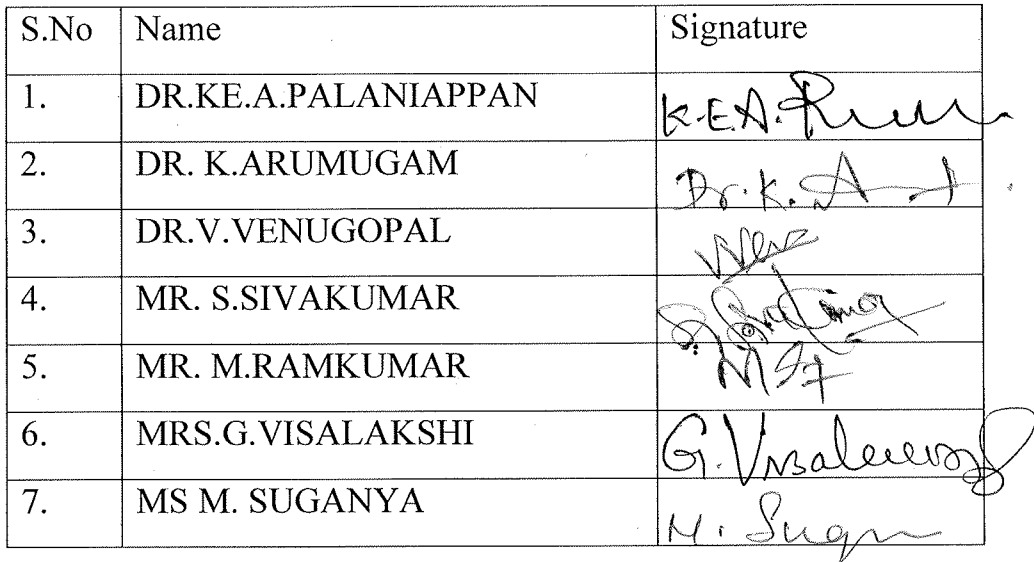 S.No Name Signature
1. DR.KE.A.PALANIAPPAN K.E.A.
2. DR. K.ARUMUGAM Dr. K. A
3. DR.V.VENUGOPAL
4. MR. S.SIVAKUMAR
5. MR. M.RAMKUMAR
6. MRS.G.VISALAKSHI G.
7. MS M. SUGANYA M.